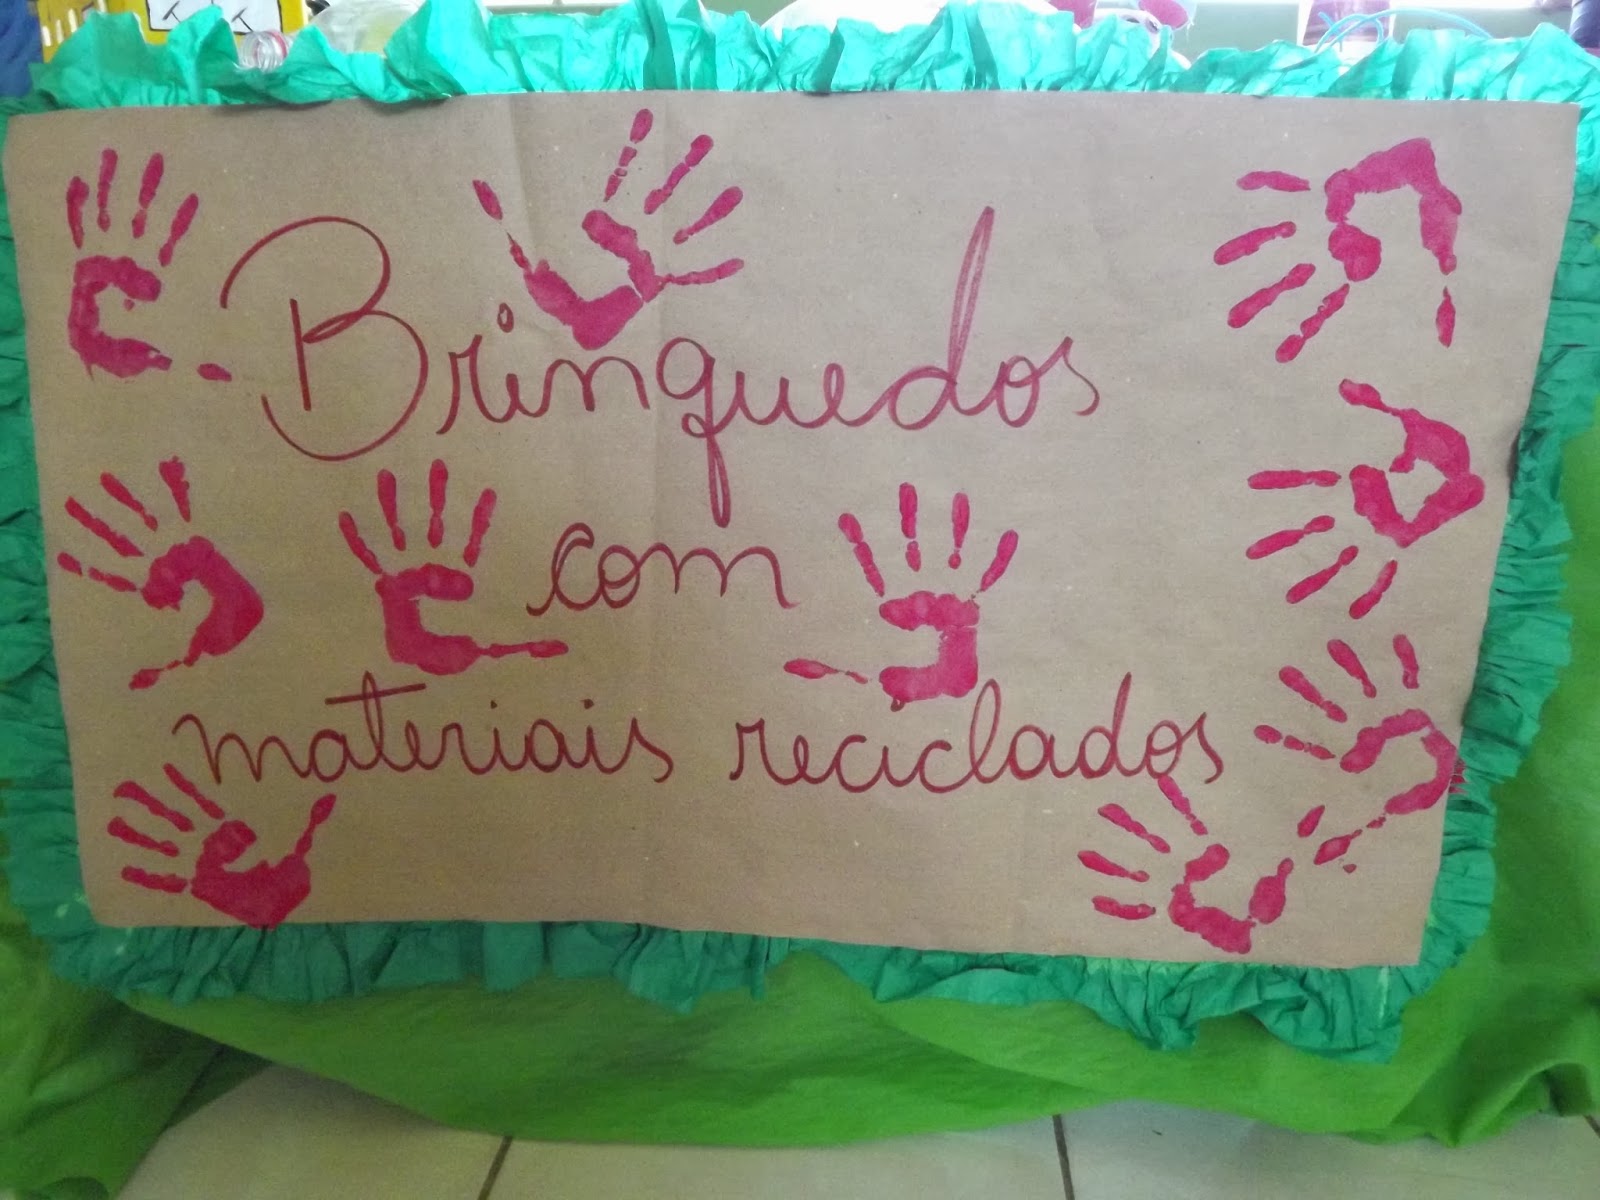 Brinquedos
com
materiais reciclados